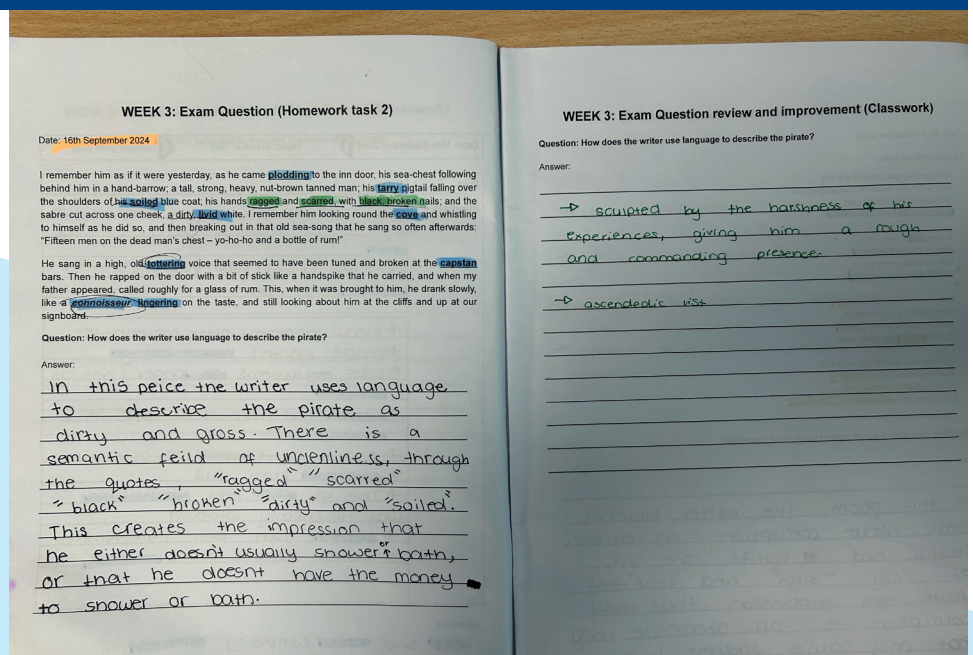 WEEK 3: Exam Question (Homework task 2)
Date: 16th September 2024
I remember him as if it were yesterday, as he came plodding to the inn door, his sea-chest following
behind him in a hand-barrow; a tall, strong, heavy, nut-brown tanned man; his tarry pigtail falling over
the shoulders of his soiled blue coat; his hands ragged and scarred, with black, broken nails; and the
sabre cut across one cheek, a dirty, livid white. I remember him looking round the cove and whistling
to himself as he did so, and then breaking out in that old sea-song that he sang so often afterwards:
"Fifteen men on the dead man's chest – yo-ho-ho and a bottle of rum!"
He sang in a high, old tottering voice that seemed to have been tuned and broken at the capstan
bars. Then he rapped on the door with a bit of stick like a handspike that he carried, and when my
father appeared, called roughly for a glass of rum. This, when it was brought to him, he drank slowly,
like a connoisseur lingering on the taste, and still looking about him at the cliffs and up at our
signboard.
Question: How does the writer use language to describe the pirate?
Answer:
In this peice the writer uses language
to describe the pirate as
dirty and gross. There is a
semantic feild of unclenliness, through
the quotes, "ragged" "scarred"
"black" "broken" "dirty" and "soiled".
This creates the impression that
he either doesn't usually shower or bath,
or that he doesnt have the money
to shower or bath.
WEEK 3: Exam Question review and improvement (Classwork)
Question: How does the writer use language to describe the pirate?
Answer:
→ sculpted by the harshness of his
experiences, giving him a rough
and commanding presence.
→ ascendedic list